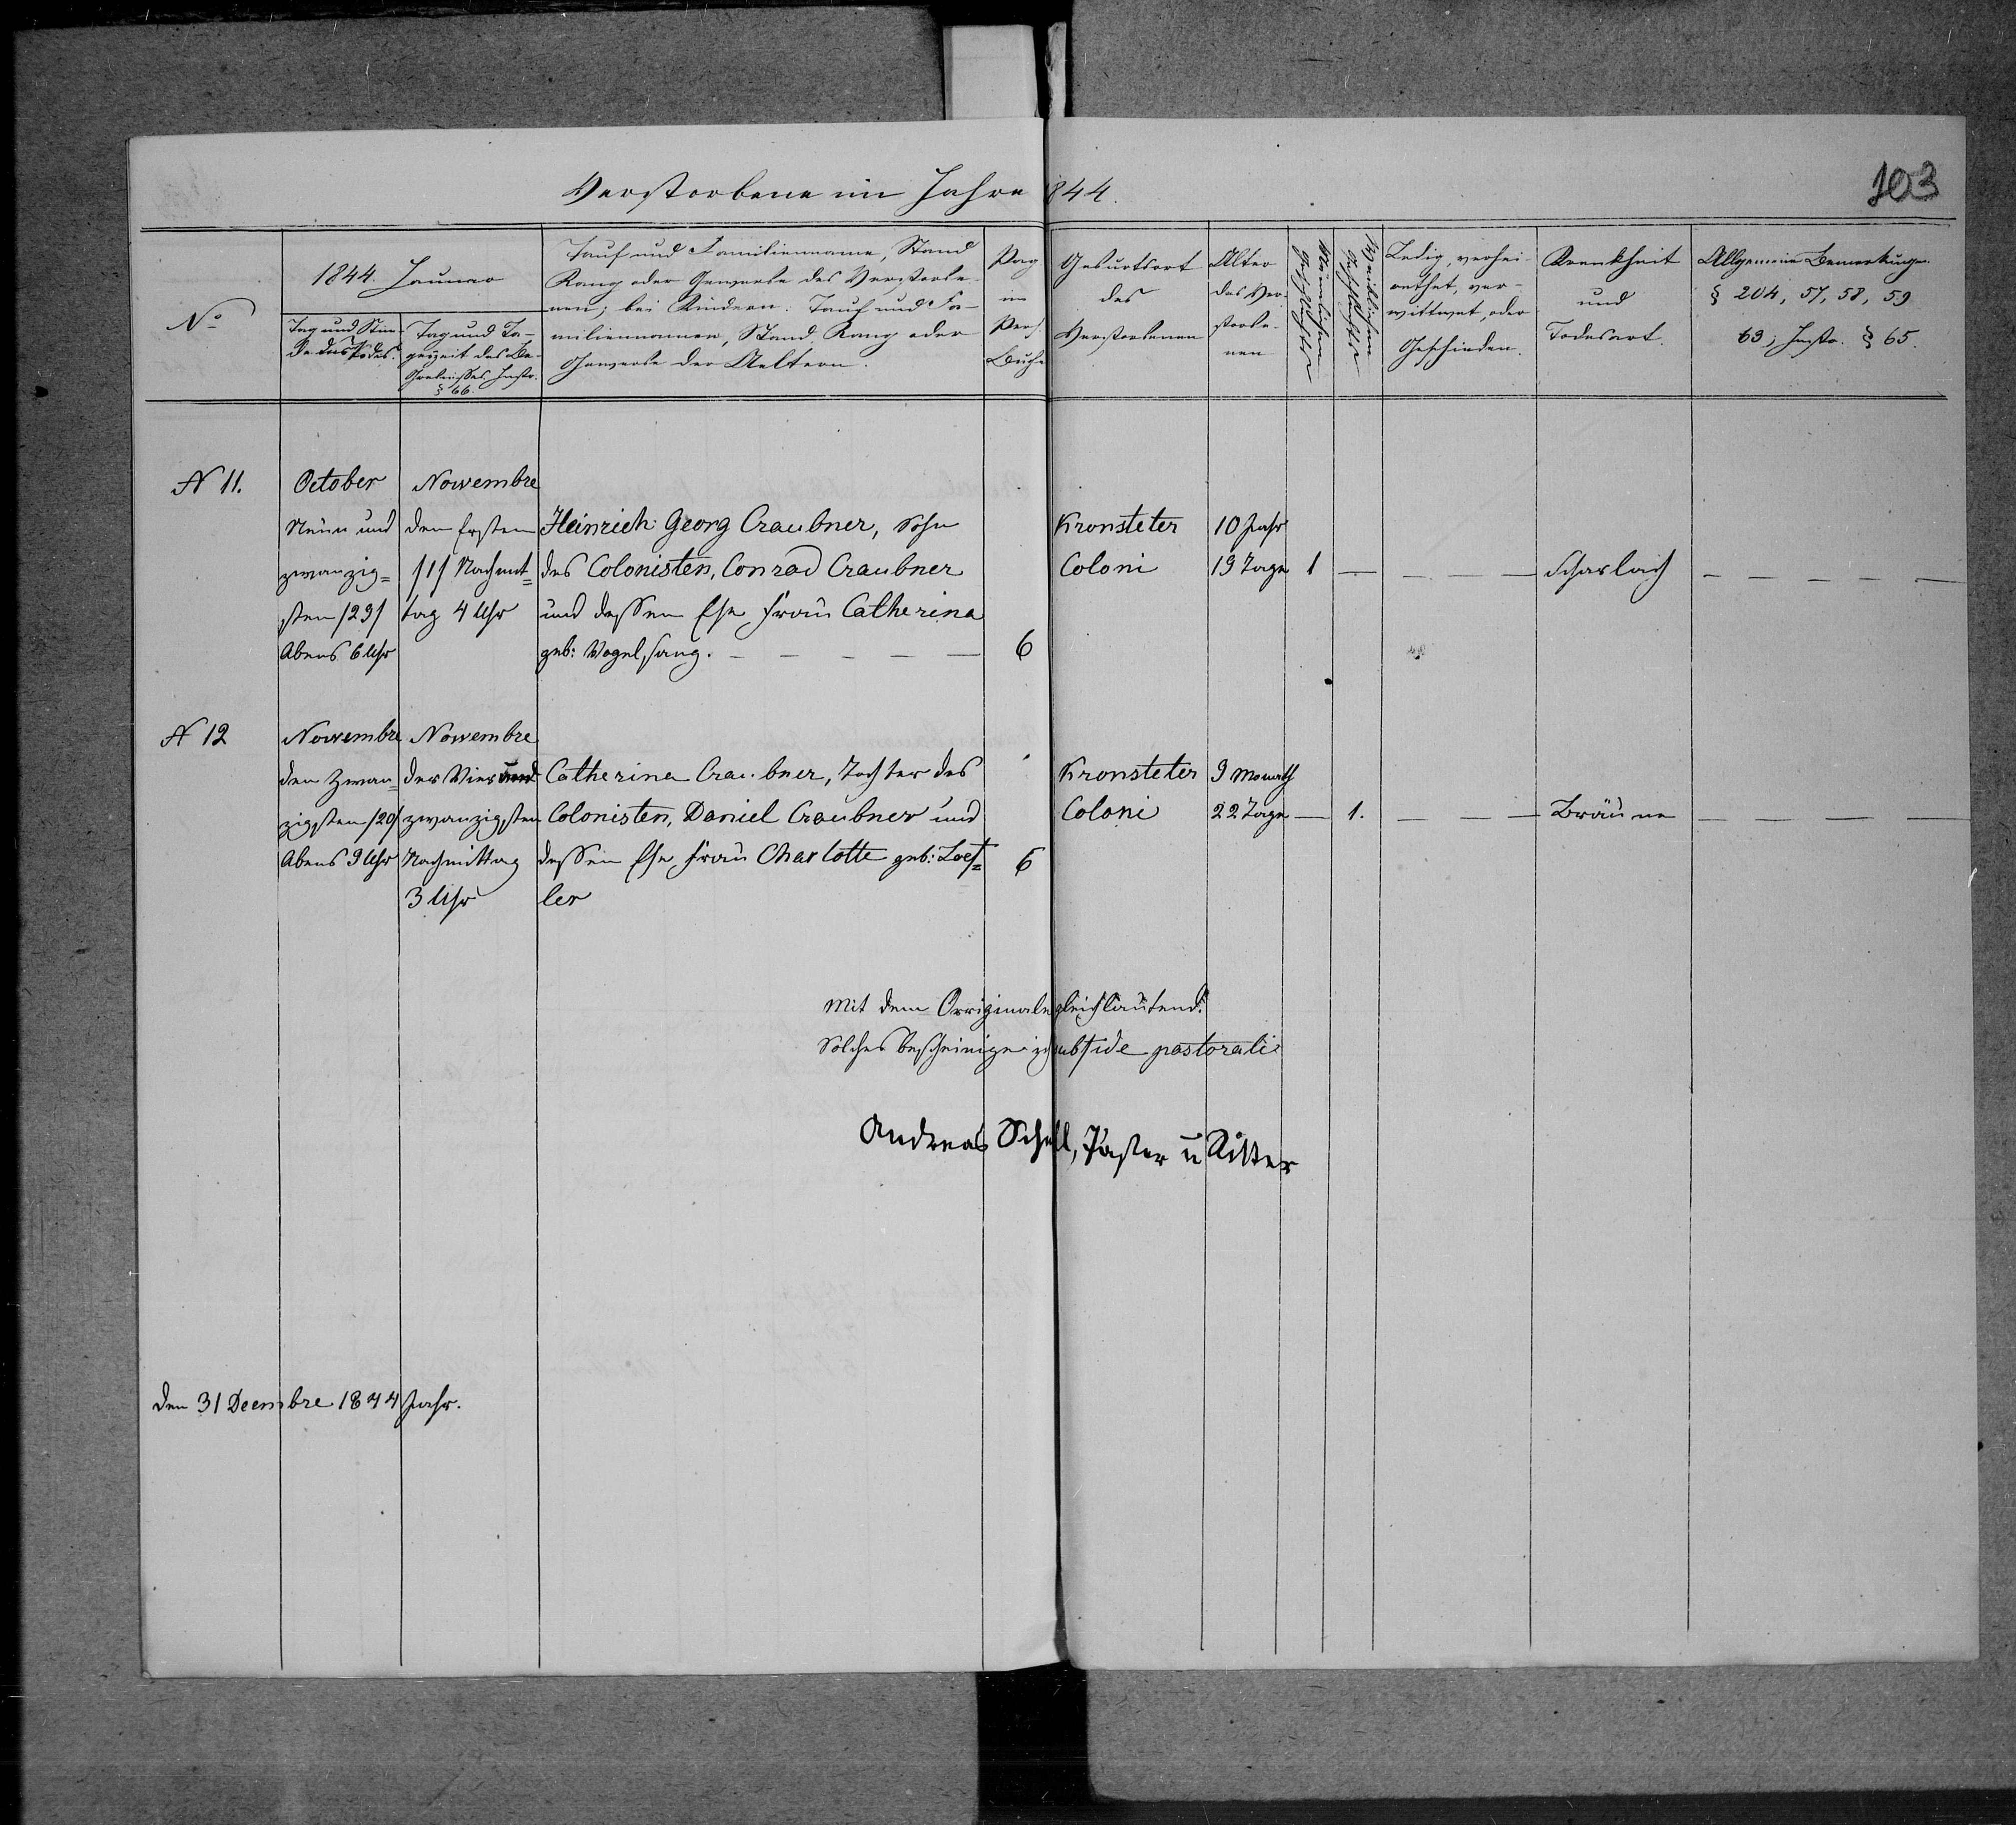 Verstorbene im Jahre 1844.
103
No
1844. Januar
Tag und Stun-
de des Todes.
Tag und Ta-
geszeit des Be-
gräbnisses Instr.
§ 66.
Tauf und Familienname, Stand
Rang oder Gewerbe des Verstorbe-
nen; bei Kindern. Tauf und Fa-
miliennamen, Stand, Rang oder
Gewerbe der Aeltern.
Pag
im
Pers.
Buche
Geburtsort
des
Verstorbenen
Alter
des Ver-
storbe-
nen
Männlichen
Geschlechts
Weiblichen
Geschlechts
Ledig, verhei-
rathet, ver-
wittwet, oder
Geschieden.
Krankheit
und
Todesart.
Allgemeine Bemerkungen.
§ 204, 57, 58, 59
63; Instr. § 65.
N 11.
October
Neun und
zwanzig=
sten /29/
Abens 6 Uhr
Nowembre
den Ersten
/1/ Nachmit=
tag 4 Uhr
Heinrich Georg Craubner, Sohn
des Colonisten, Conrad Craubner
und dessen Ehe frau Catherina
geb: Vogelsang. — — — — —
6
Kronsteter
Coloni
10 Jahr
19 Tage
1
—
— — —
Scharlach
— — — — —
N 12
Nowembre
den Zwan=
zigsten /20/
Abens 9 Uhr
Nowembre
der Vier und
zwanzigsten
Nachmittag
3 Uhr
Catherina Craubner, Tochter des
Colonisten, Daniel Craubner und
dessen Ehe frau Charlotte geb: Loef=
ler
6
Kronsteter
Coloni
9 Monath
22 Tage
—
1.
— — —
Bräune
— — — — —
Mit dem Orriginale gleichlautend.
Solches bescheinige ich sub fide pastorali
Andreas Schell, Pastor u Ritter
den 31 Deembre 1844 Jahr.